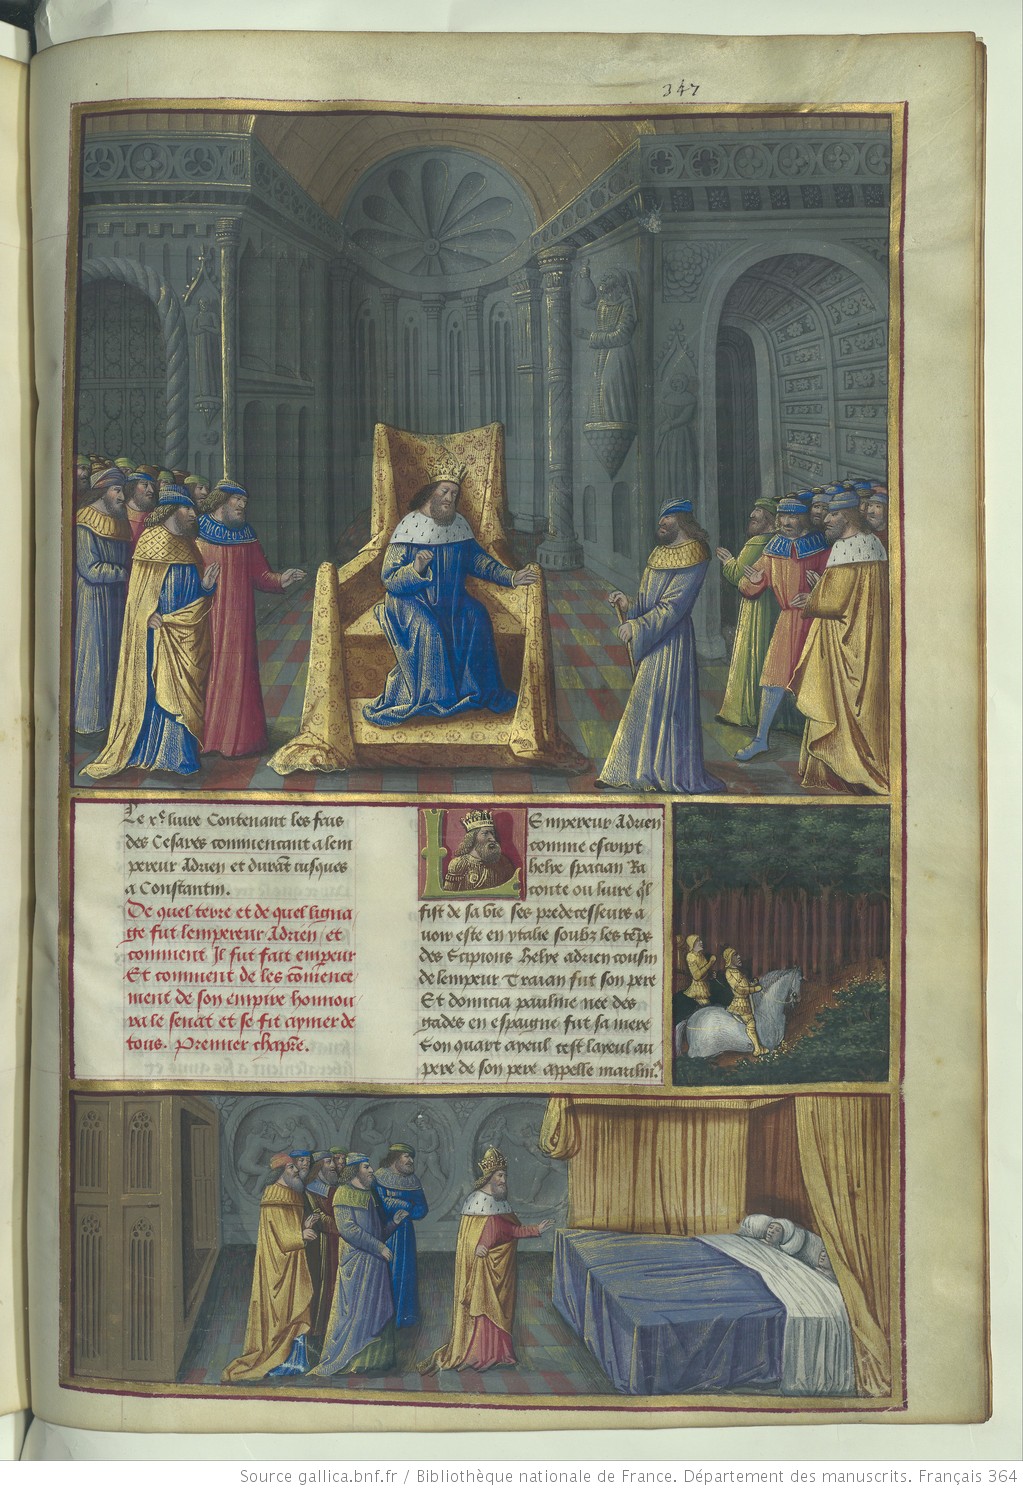 347
Le xe. livre Contenant les fais
des Cesares commencant a lem
pereur Adrien et durāt iusques
a Constantin.
De quel terre et de quel ligna
ge fut lempereur Adrien / et
comment Il fut fait emperēur
Et comment de les cōmence
ment de son empire honnou
ra le senat et se fit aymer de
tous. Premier chapr̄e.
LEmpereur Adrien
comme escript
helye spacian Ra
conte ou livre q̄l
fist de sa vie ses predecesseurs a
voir este en ytalie soubz les tēps
des Scipions helye adrien cousin
de lempeur Traian fut son pere
Et domicia pauline nee des
gades en espaigne fut sa mere
Son quart ayeul cest layeul au
pere de son pere appelle maulin?
Source gallica.bnf.fr / Bibliothèque nationale de France. Département des manuscrits. Français 364